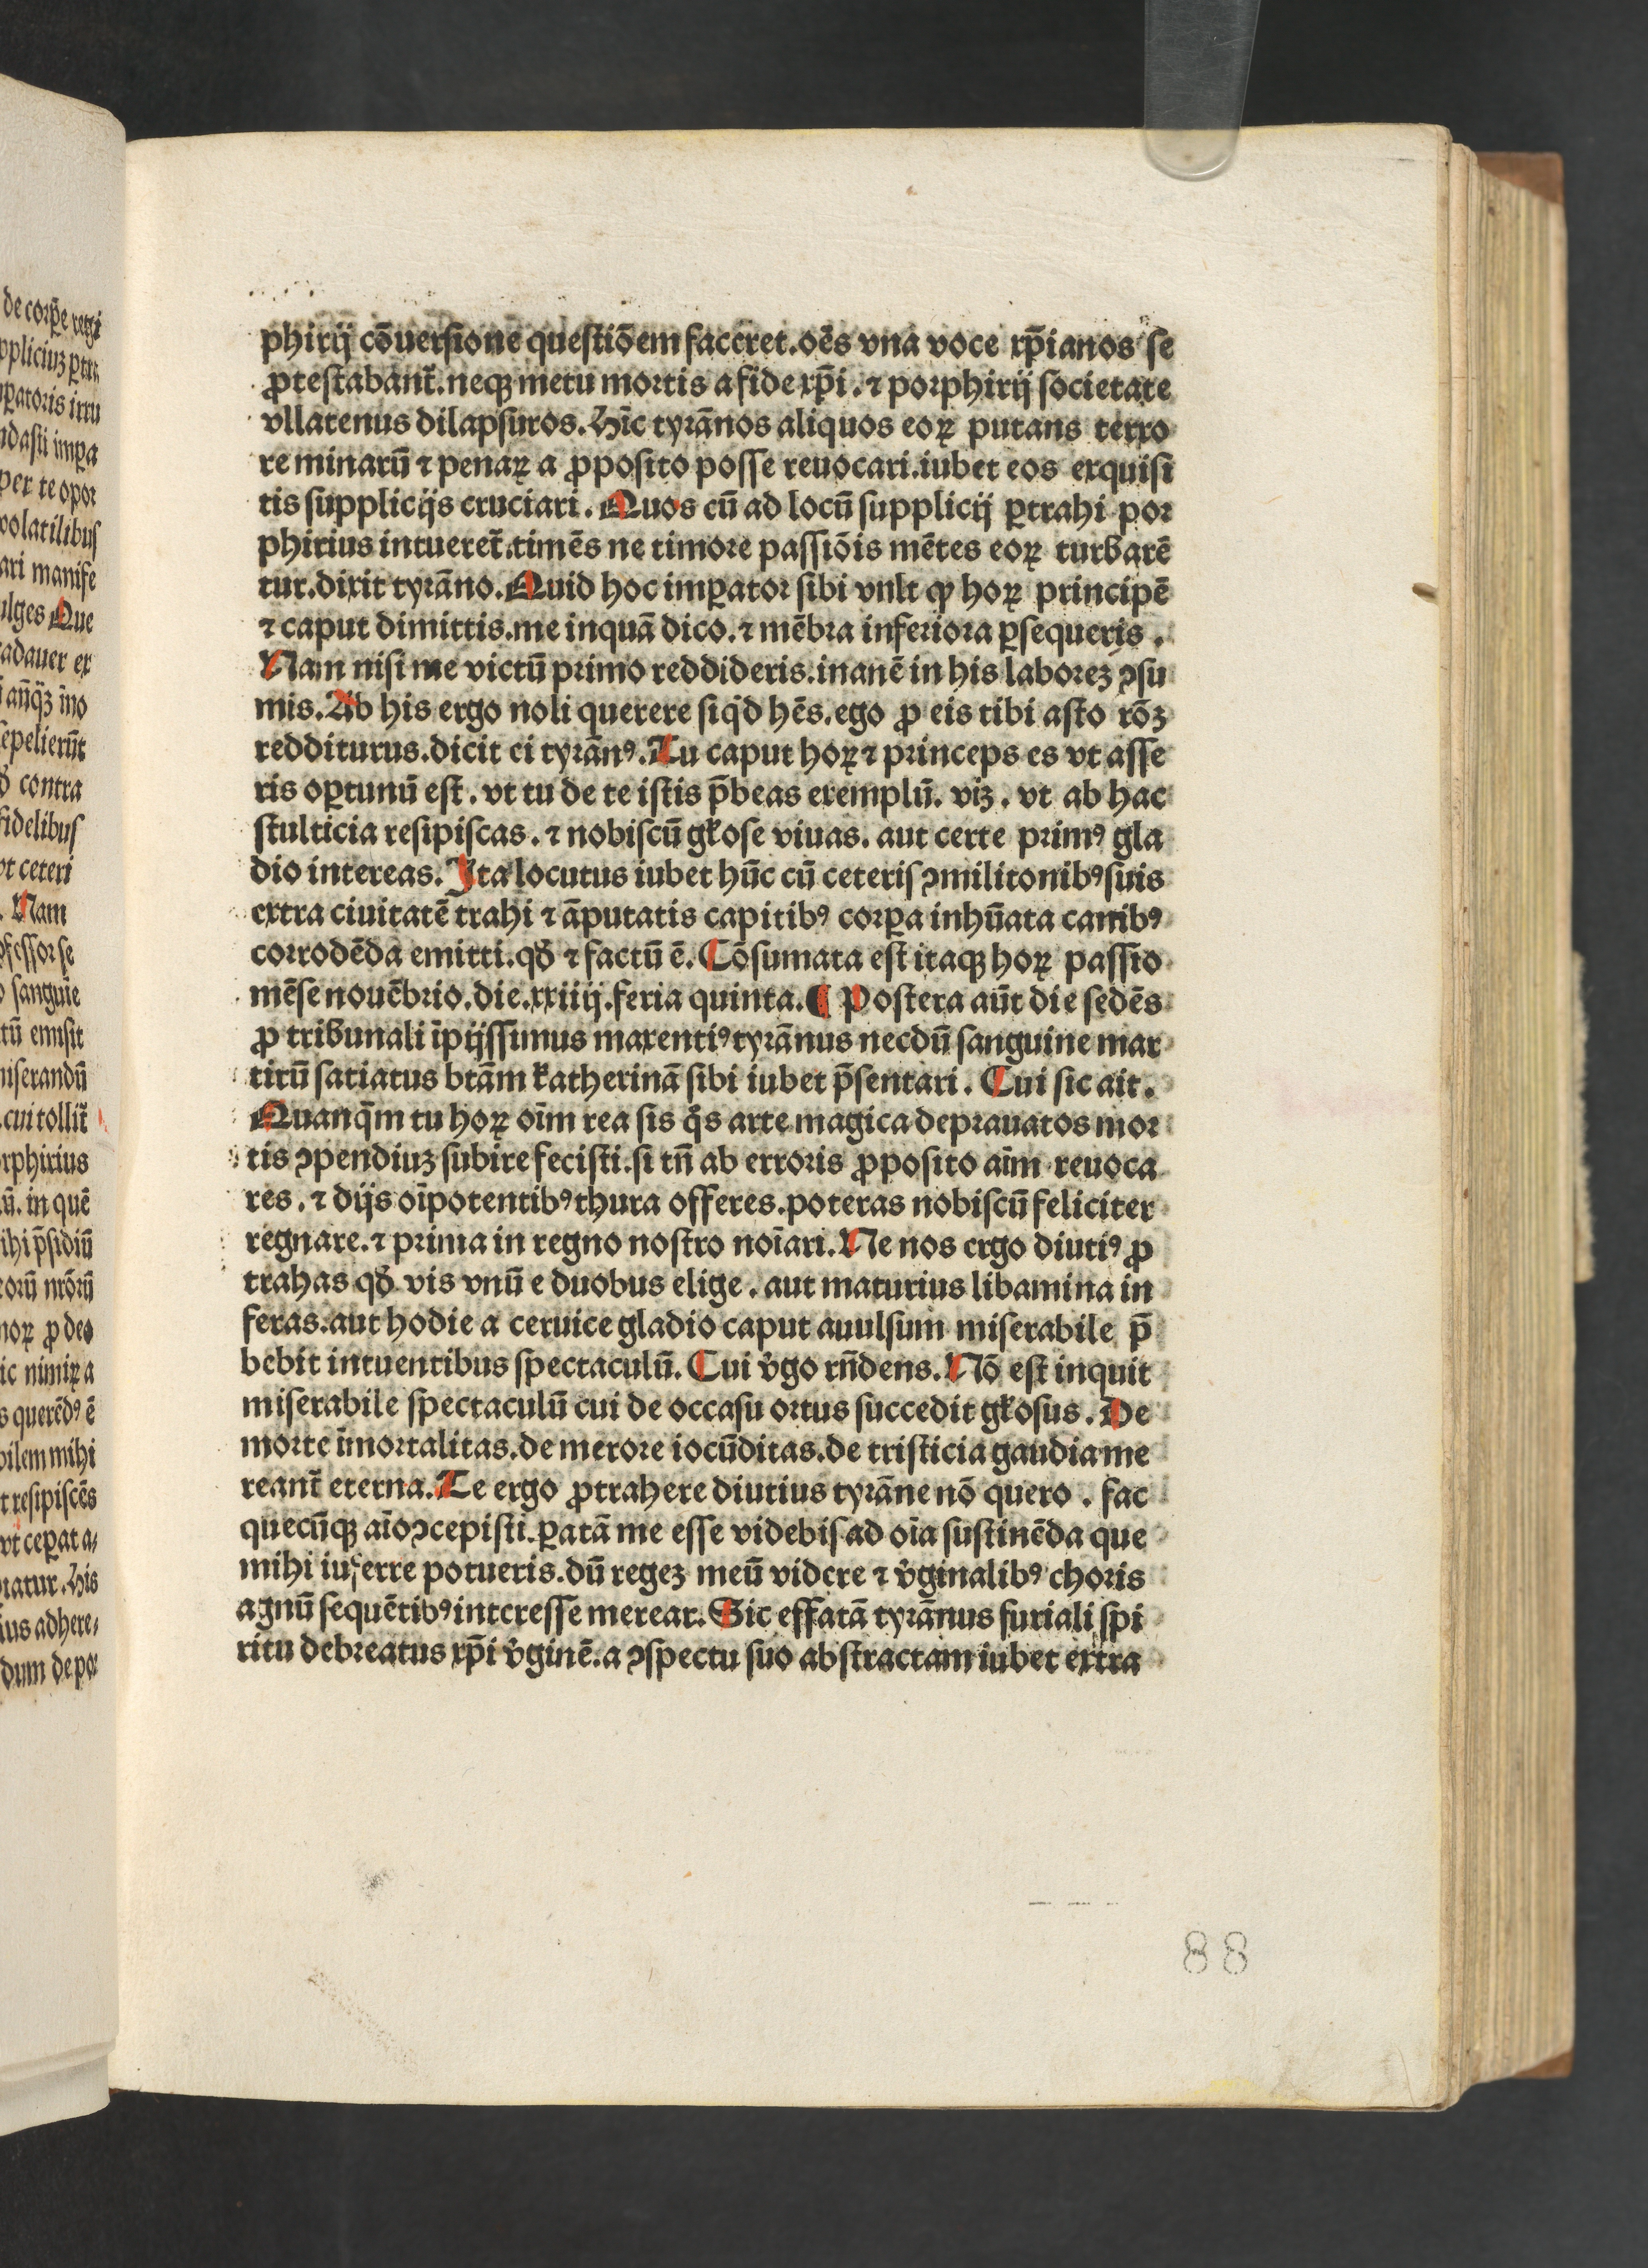 phirij cōuersione questiōem faceret.oēs vna voce xp̄ianos se
ꝓtestabant̄.neqꝫ metu mortis a fide xp̄i.⁊ porphirij societate
vllatenus dilapsuros.Hīc tyrānos aliquos eoꝝ putans terro
re minarū ⁊ penaꝝ a ꝓposito posse reuocari.iubet eos exquisi
tis supplicijs cruciari.Quos cū ad locū supplicij ꝑtrahi por
phirius intueret̄.timēs ne timore passiōis mētes eoꝝ turbarē
tur.dixit tyrāno.Quid hoc imꝑator sibi vult ꝙ hoꝝ principē
⁊ caput dimittis.me inquā dico.⁊ mēbra inferiora ꝑsequeris.
Nam nisi me victū primo reddideris.inanē in his laboreꝫ ꝯsu
mis.Ab his ergo noli querere siqͥd hēs.ego ꝓ eis tibi asto rōꝫ
redditurus.dicit ei tyrānꝰ.Tu caput hoꝝ ⁊ princeps es vt asse
ris oꝑtunū est.vt tu de te istis p̄beas exemplū.viꝫ.vt ab hac
stulticia resipiscas.⁊ nobiscū gl̄ose viuas.aut certe primꝰ gla
dio intereas.Ita locutus iubet hūc cū ceteris ꝯmilitonibꝰ suis
extra ciuitatē trahi ⁊ āputatis capitibꝰ corꝑa inhūata canibꝰ
corrodēda emitti.qd̄ ⁊ factū ē.Cōsumata est itaqꝫ hoꝝ passio
mēse nouēbrio.die.xxiiij.feria quinta.¶ Postera aūt die sedēs
ꝓ tribunali īpijssimus maxentiꝰ tyrānnus necdū sanguine mar
tirū satiatus btām katherinā sibi iubet p̄sentari.Cui sic ait.
Quanq̄m tu hoꝝ oīm rea sis qͦs arte magica deprauatos mor
tis ꝯpendiuꝫ subire fecisti.si tn̄ ab erroris ꝓposito aīm reuoca
res.⁊ dijs oīpotentibꝰ thura offeres.poteras nobiscū feliciter
regnare.⁊ prima in regno nostro noīari.Ne nos ergo diutiꝰ ꝓ
trahas qd̄ vis vnū e duobus elige.aut maturius libamina in
feras.aut hodie a ceruice gladio caput auulsum miserabile p̄
bebit intuentibus spectaculū.Cui v̓go rn̄dens.Nō est inquit
miserabile spectaculū cui de occasu ortus succedit gl̄osus.De
morte īmortalitas.de merore iocūditas.de tristicia gaudia me
reant̄ eterna.Te ergo ꝓtrahere diutius tyrāne nō quero.fac
quecūqꝫ aīo ꝯcepisti.ꝑatā me esse videbis ad oīa sustinēda que
mihi inferre potueris.dū regeꝫ meū videre ⁊ v̓ginalibꝰ choris
agnū sequētibꝰ interesse merear.Sic effatā tyrānnus furiali spi
ritu debreatus xp̄i v̓ginē.a ꝯspectu suo abstractam iubet extra
88